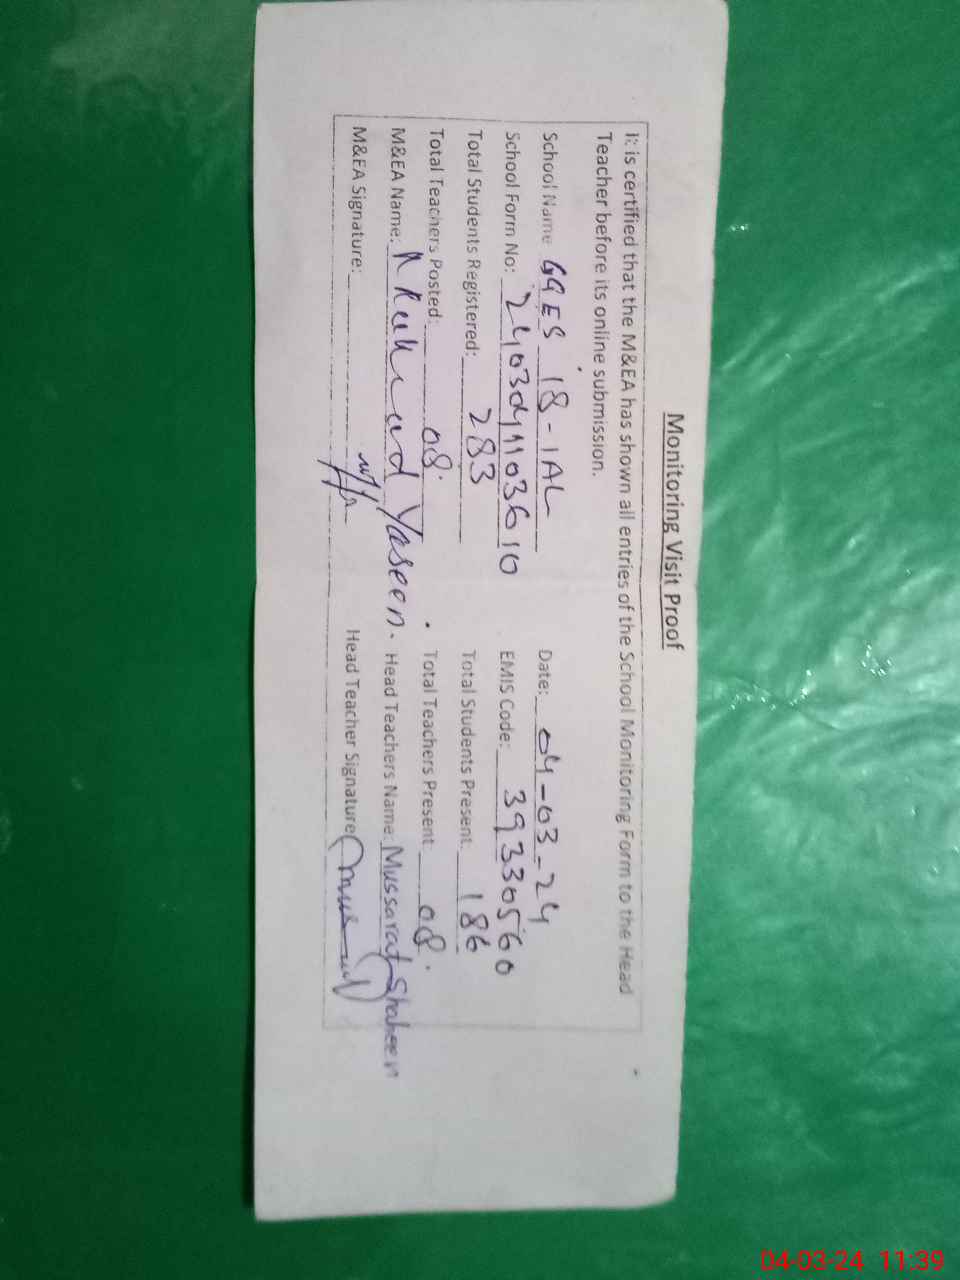 Monitoring Visit Proof
It is certified that the M&EA has shown all entries of the School Monitoring Form to the Head
Teacher before its online submission.
School Name GGES 18-1AL Date: 04-03-24
School Form No: EMIS Code: 39330560
Total Students Registered: 283 Total Students Present: 186
Total Teachers Posted: 08. Total Teachers Present: 08.
M&EA Name: Yaseen. Head Teachers Name: Mussarat Shaheen
M&EA Signature: Head Teacher Signature
04-03-24 11:39